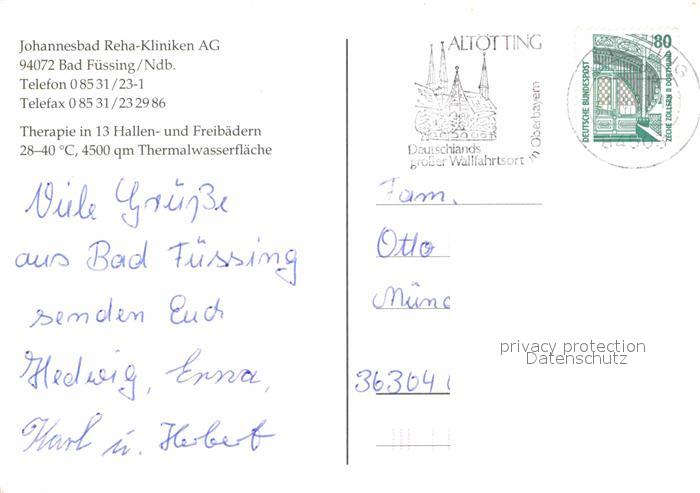 Johannesbad Reha-Kliniken AG
94072 Bad Füssing/Ndb.
Telefon 0 85 31/23-1
Telefax 0 85 31/23 29 86
Therapie in 13 Hallen- und Freibädern
28–40 °C, 4500 qm Thermalwasserfläche
Viele Grüße
aus Bad Füssing
senden Euch
Hedwig, Erna,
Karl u. Herbert
ALTÖTTING
in Oberbayern
Deutschlands
großer Wallfahrtsort
80
DEUTSCHE BUNDESPOST
ZECHE ZOLLERN II DORTMUND
Fam.
Otto
Münc
36304
privacy protection
Datenschutz